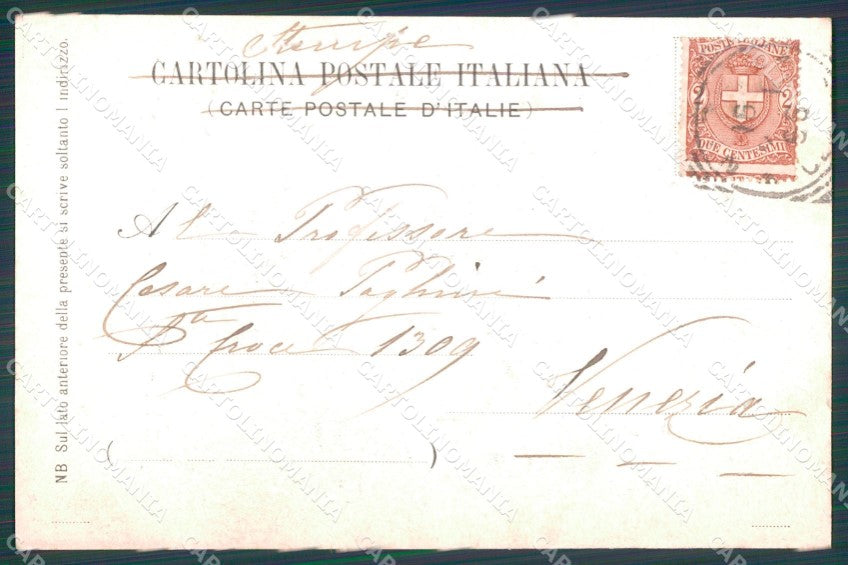 Stampe
CARTOLINA POSTALE ITALIANA
(CARTE POSTALE D'ITALIE)
POSTE ITALIANE
2 2
DUE CENTESIMI
Al Professore
Cesare Paghini
Sta Croce 1309
Venezia
( )
NB Sul lato anteriore della presente si scrive soltanto l indirizzo.
CARTOLINOMANIA